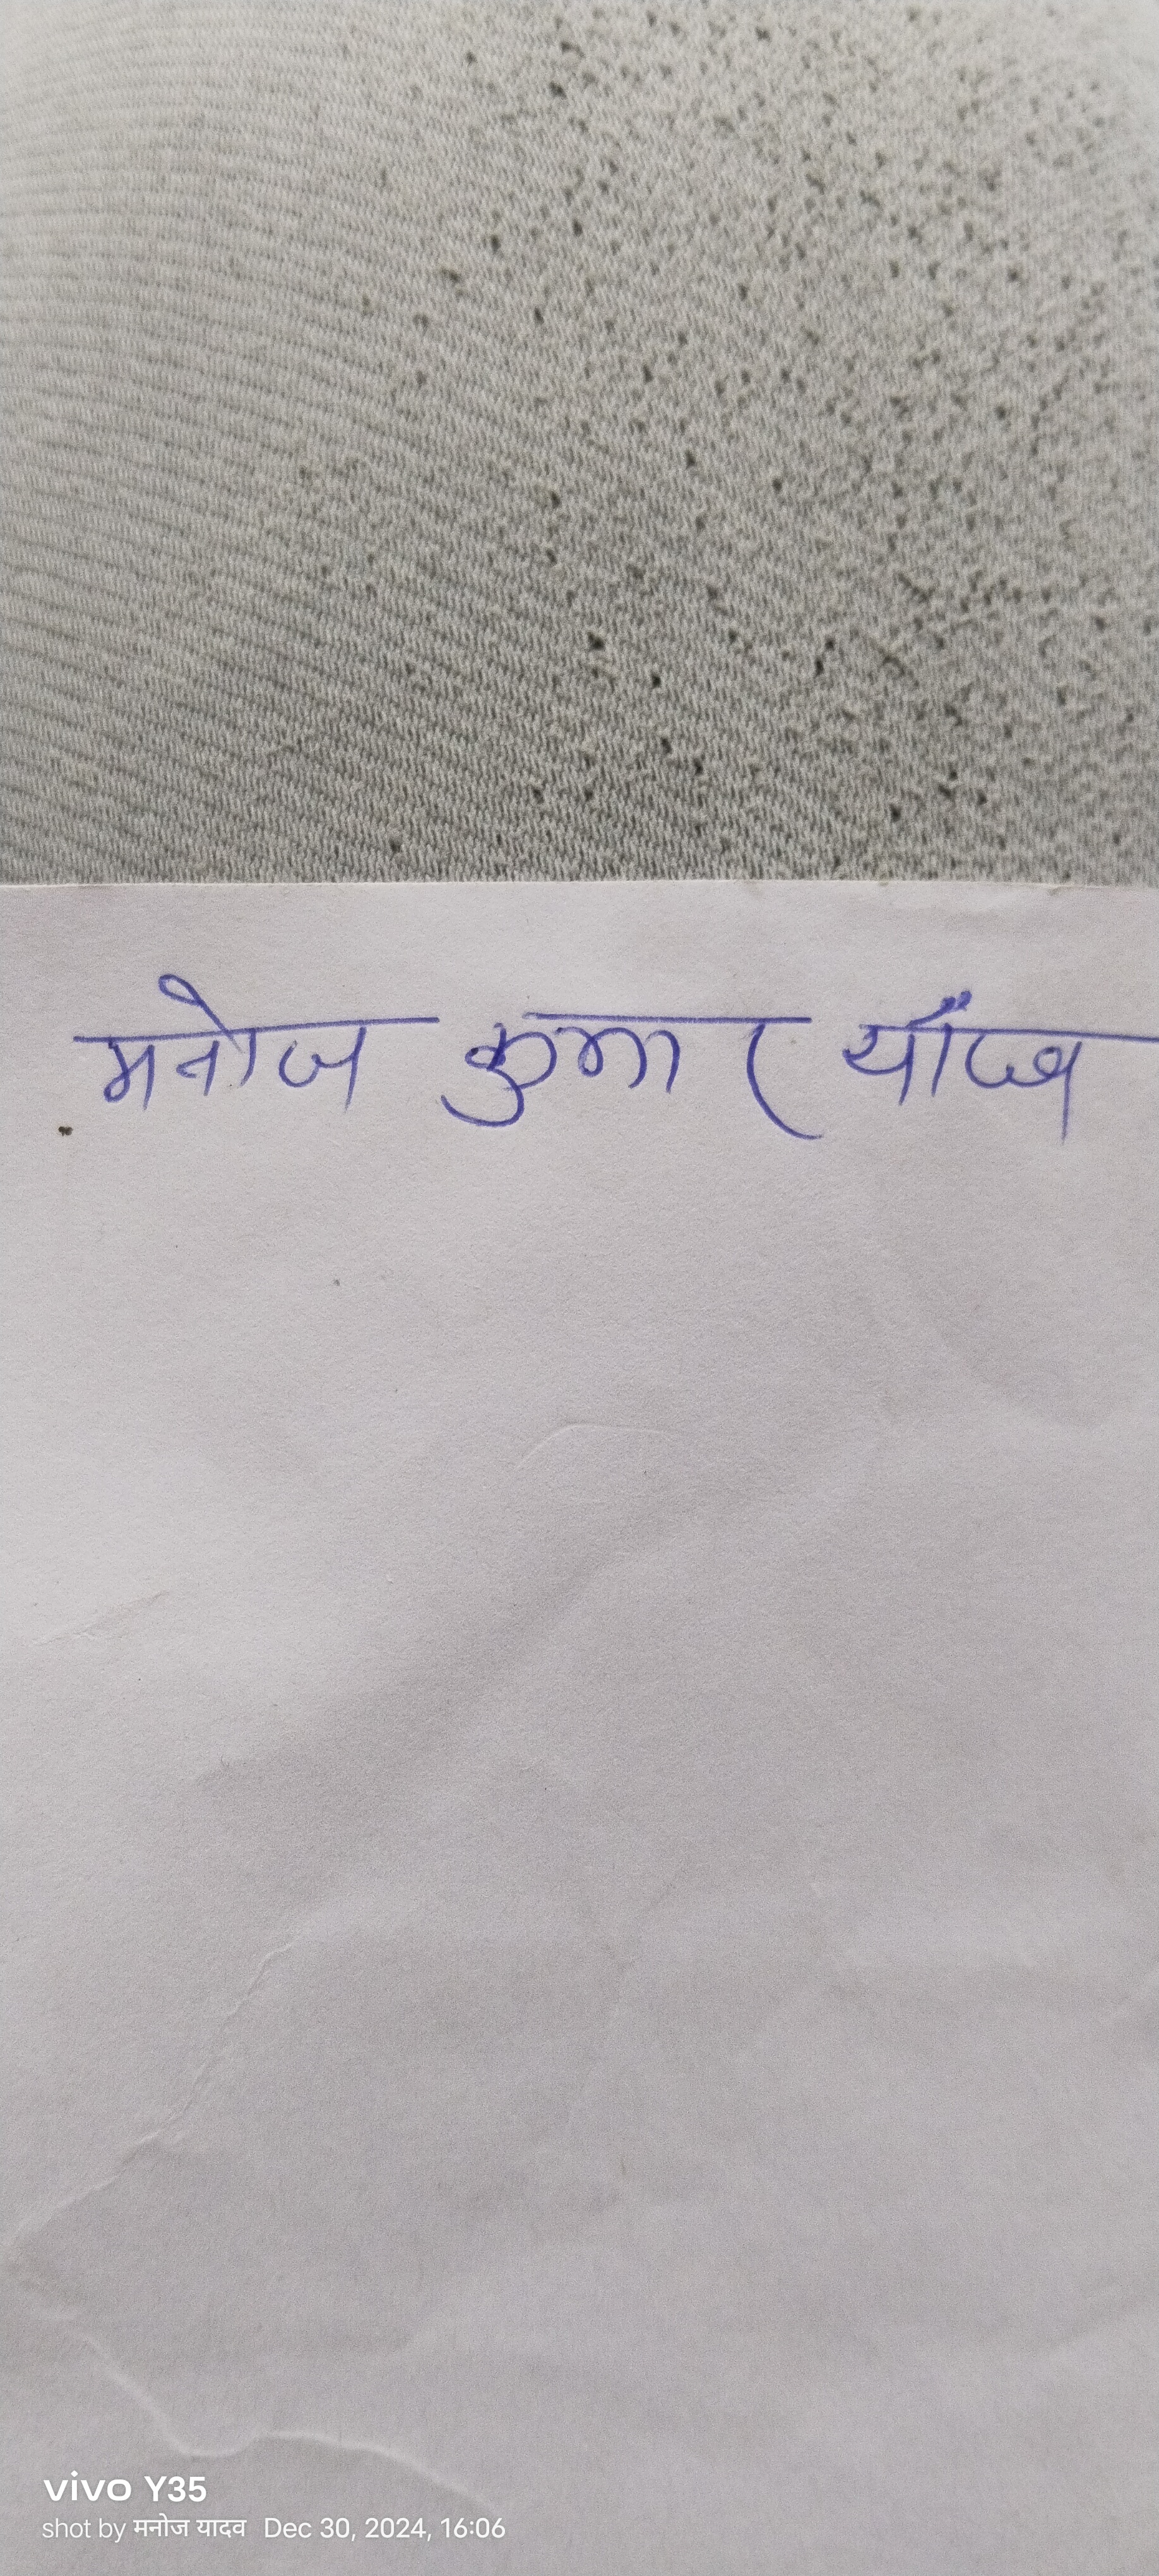 मनोज कुमार यादव
vivo Y35
shot by मनोज यादव Dec 30, 2024, 16:06